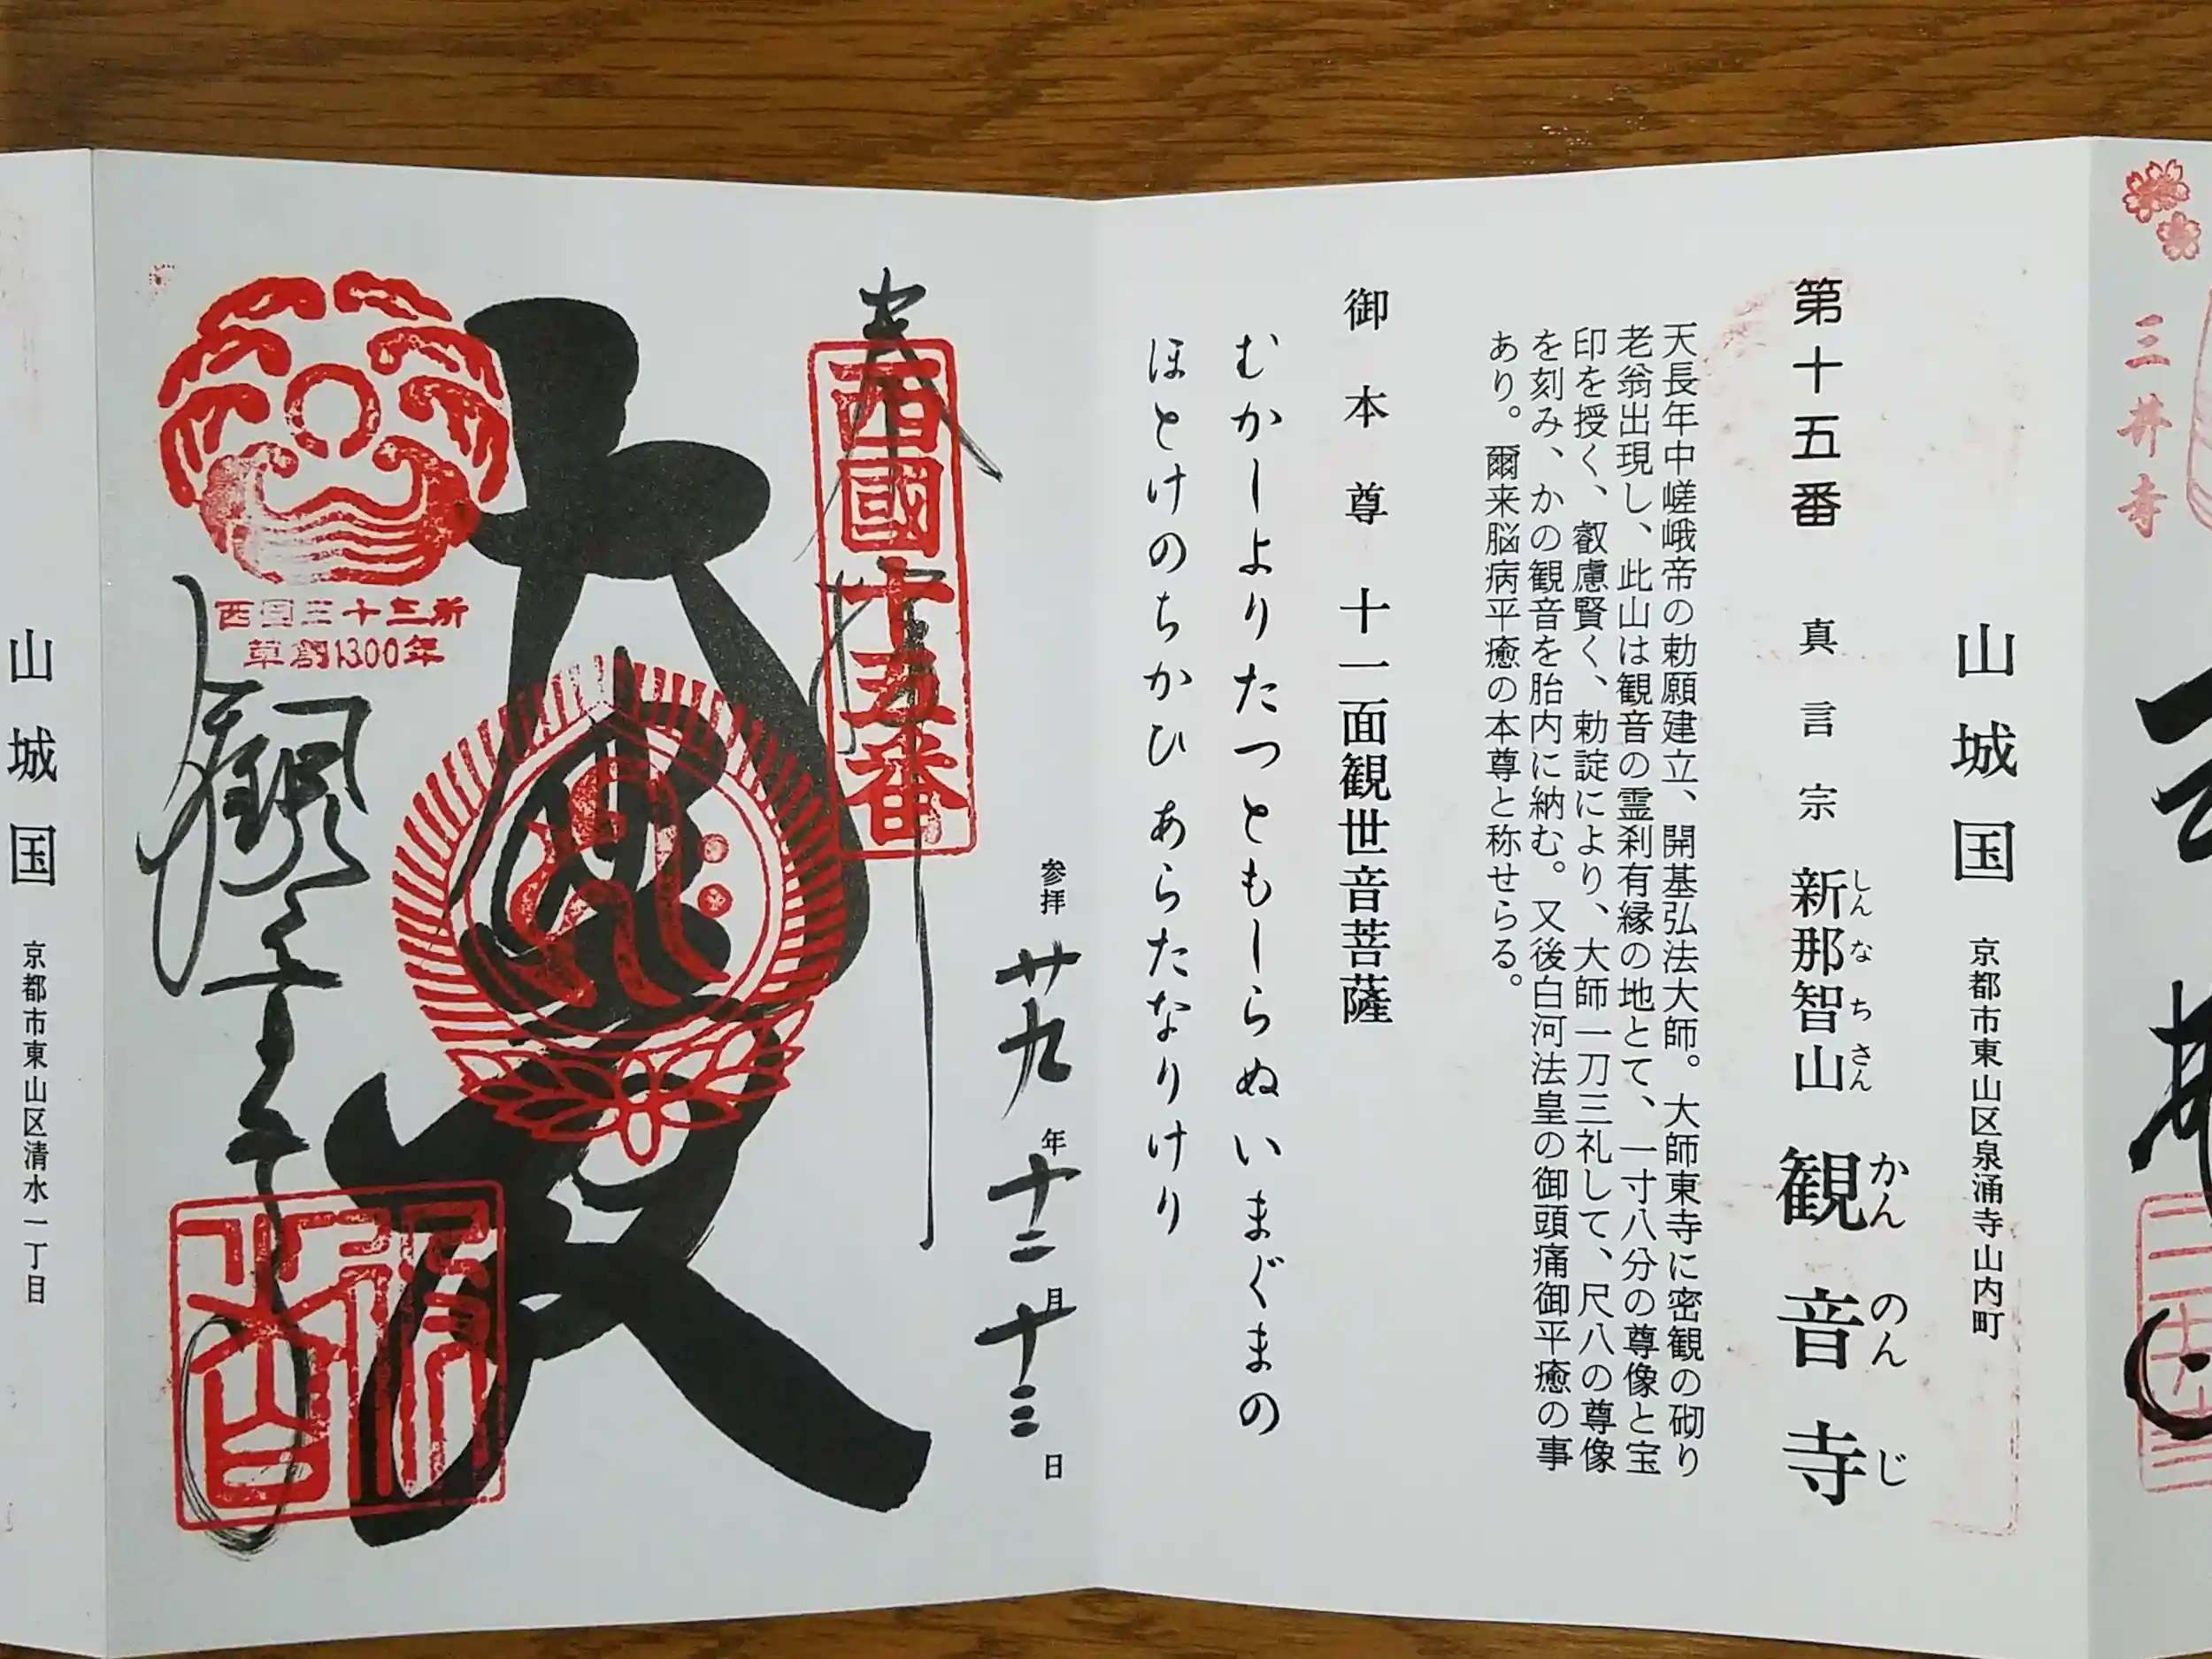 三井寺
山城国 京都市東山区泉涌寺山内町
第十五番 真言宗 新那智山 観音寺
しん な ち さん かん のん じ
天長年中嵯峨帝の勅願建立、開基弘法大師。大師東寺に密観の砌り
老翁出現し、此山は観音の霊刹有縁の地とて、一寸八分の尊像と宝
印を授く、叡慮賢く、勅諚により、大師一刀三礼して、尺八の尊像
を刻み、かの観音を胎内に納む。又後白河法皇の御頭痛御平癒の事
あり。爾来脳病平癒の本尊と称せらる。
御本尊 十一面観世音菩薩
むかしよりたつともしらぬいまぐまの
ほとけのちかひあらたなりけり
参拝 廿九年十二月十三日
奉拝
西國十五番
大悲殿
西国三十三所
草創1300年
観音寺
山城国 京都市東山区清水一丁目